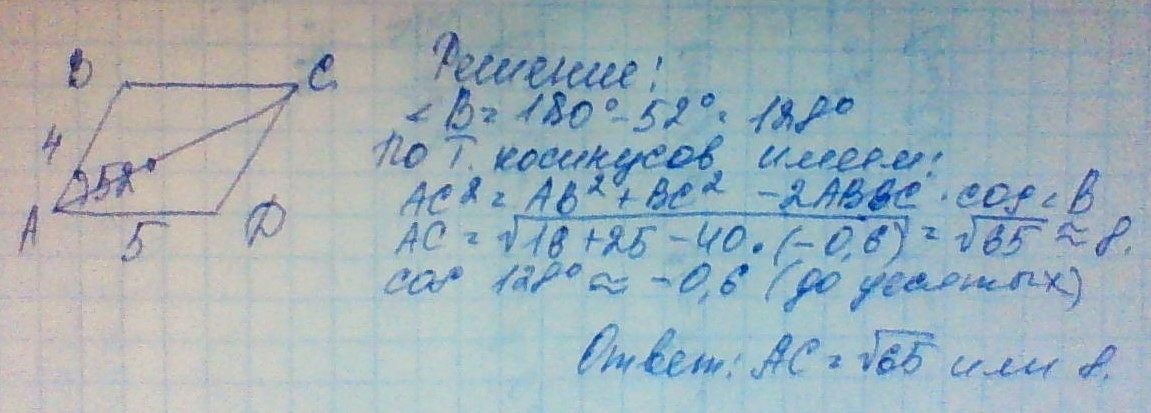 B C
4
52°
A 5 D
Решение:
∠B = 180° - 52° = 128°
По т. косинусов имеем:
AC² = AB² + BC² - 2ABBC · cos ∠B
AC = √16 + 25 - 40 · (-0,6) = √65 ≈ 8.
cos 128° ≈ -0,6 (до десятых)
Ответ: AC = √65 или 8.